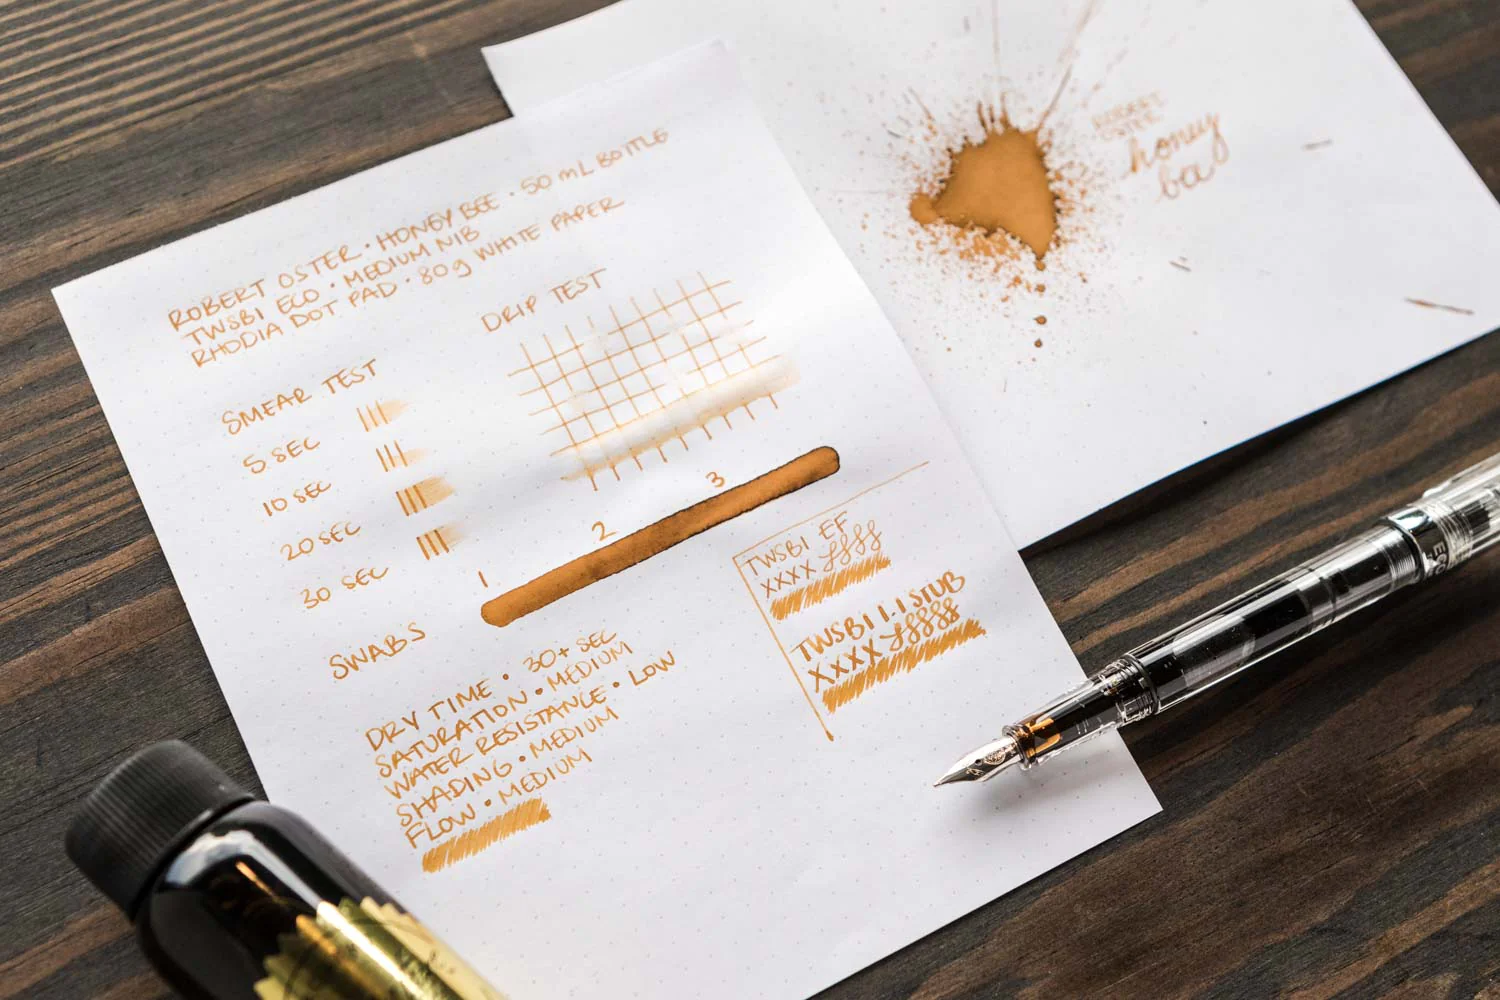 ROBERT OSTER • HONEY BEE • 50 mL BOTTLE
TWSBI ECO • MEDIUM NIB
RHODIA DOT PAD • 80g WHITE PAPER
SMEAR TEST
5 SEC
10 SEC
20 SEC
30 SEC
DRIP TEST
SWABS
1
2
3
DRY TIME • 30+ SEC
SATURATION • MEDIUM
WATER RESISTANCE • LOW
SHADING • MEDIUM
FLOW • MEDIUM
TWSBI EF
XXXX
TWSBI 1.1 STUB
XXXX
ROBERT
OSTER
honey
ECO